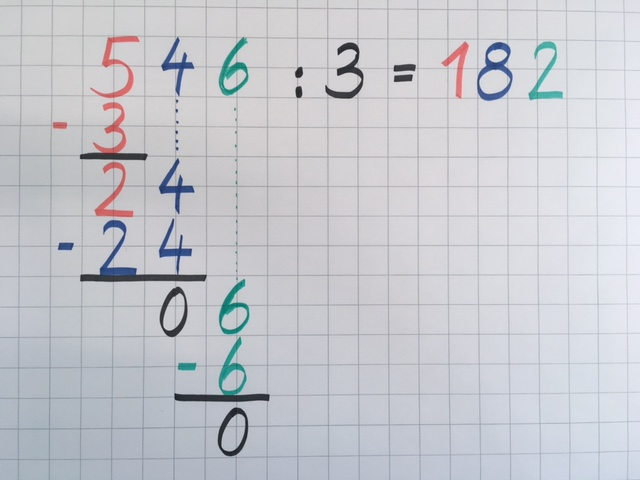 546 : 3 = 182
- 3
24
- 24
06
- 6
0